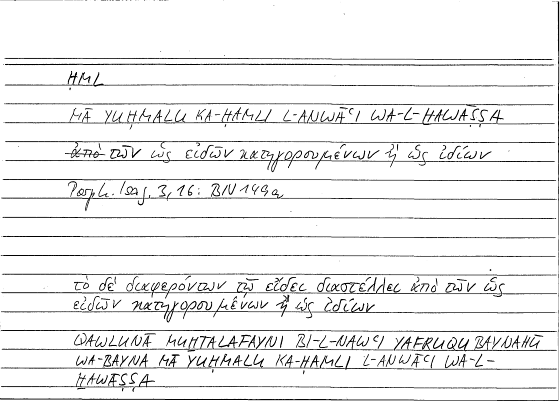 ḤML
MĀ YUḤMALU KA-ḤAMLI L-ANWĀʿI WA-L-ḪAWĀṢṢA
ἀπὸ τῶν ὡς εἰδῶν κατηγορουμένων ἢ ὡς ἰδίων
Porph. Isag. 3,16: BN 149a
τὸ δὲ διαφερόντων τῷ εἴδει διαστέλλει ἀπὸ τῶν ὡς
εἰδῶν κατηγορουμένων ἢ ὡς ἰδίων
QAWLUNĀ MUḪTALAFAYNI BI-L-NAWʿI YAFRUQU BAYNAHŪ
WA-BAYNA MĀ YUḤMALU KA-ḤAMLI L-ANWĀʿI WA-L-
ḪAWĀṢṢA